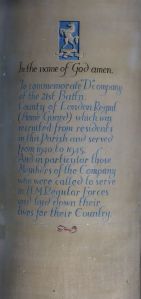 In the name of God amen.
To commemorate D Company
of the 21st Battn.
County of London Regnl
(Home Guard) which was
recruited from residents
in this Parish and served
from 1940 to 1945.
And in particular those
Members of the Company
who were called to serve
in H.M. Regular Forces
and laid down their
lives for their Country.